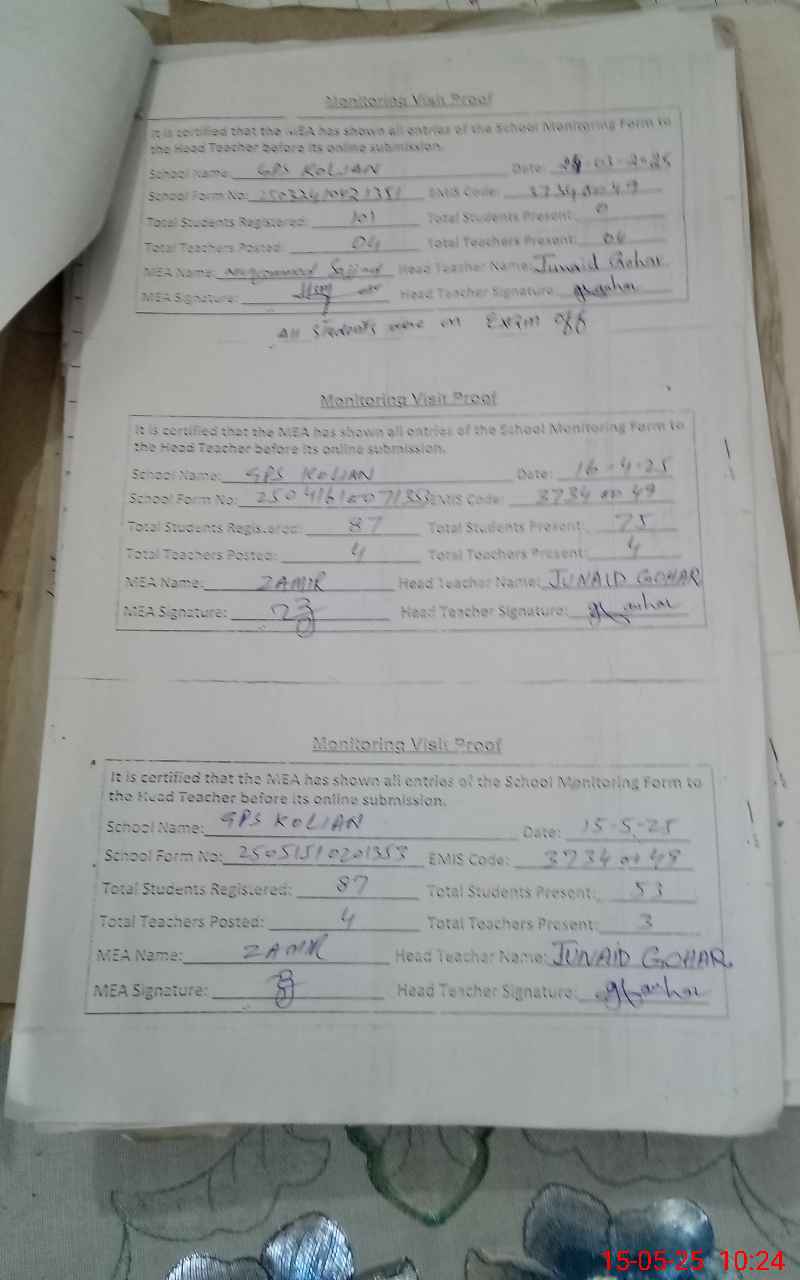 Monitoring Visit Proof
It is certified that the MEA has shown all entries of the School Monitoring Form to
the Head Teacher before its online submission.
School Name: GPS KOLIAN Date: -03-2025
School Form No: EMIS Code:
Total Students Registered: 101 Total Students Present: 0
Total Teachers Posted: 04 Total Teachers Present: 04
MEA Name: Muhammad Sajjad Head Teacher Name: Junaid Gohar
MEA Signature: Head Teacher Signature:
All Students were on Exam off
Monitoring Visit Proof
It is certified that the MEA has shown all entries of the School Monitoring Form to
the Head Teacher before its online submission.
School Name: GPS KOLIAN Date: 16-4-25
School Form No: EMIS Code:
Total Students Registered: 87 Total Students Present: 75
Total Teachers Posted: 4 Total Teachers Present: 4
MEA Name: ZAMIR Head Teacher Name: JUNAID GOHAR
MEA Signature: Head Teacher Signature:
Monitoring Visit Proof
It is certified that the MEA has shown all entries of the School Monitoring Form to
the Head Teacher before its online submission.
School Name: GPS KOLIAN Date: 15-5-25
School Form No: EMIS Code:
Total Students Registered: 87 Total Students Present: 53
Total Teachers Posted: 4 Total Teachers Present: 3
MEA Name: ZAMIR Head Teacher Name: JUNAID GOHAR
MEA Signature: Head Teacher Signature:
15-05-25 10:24